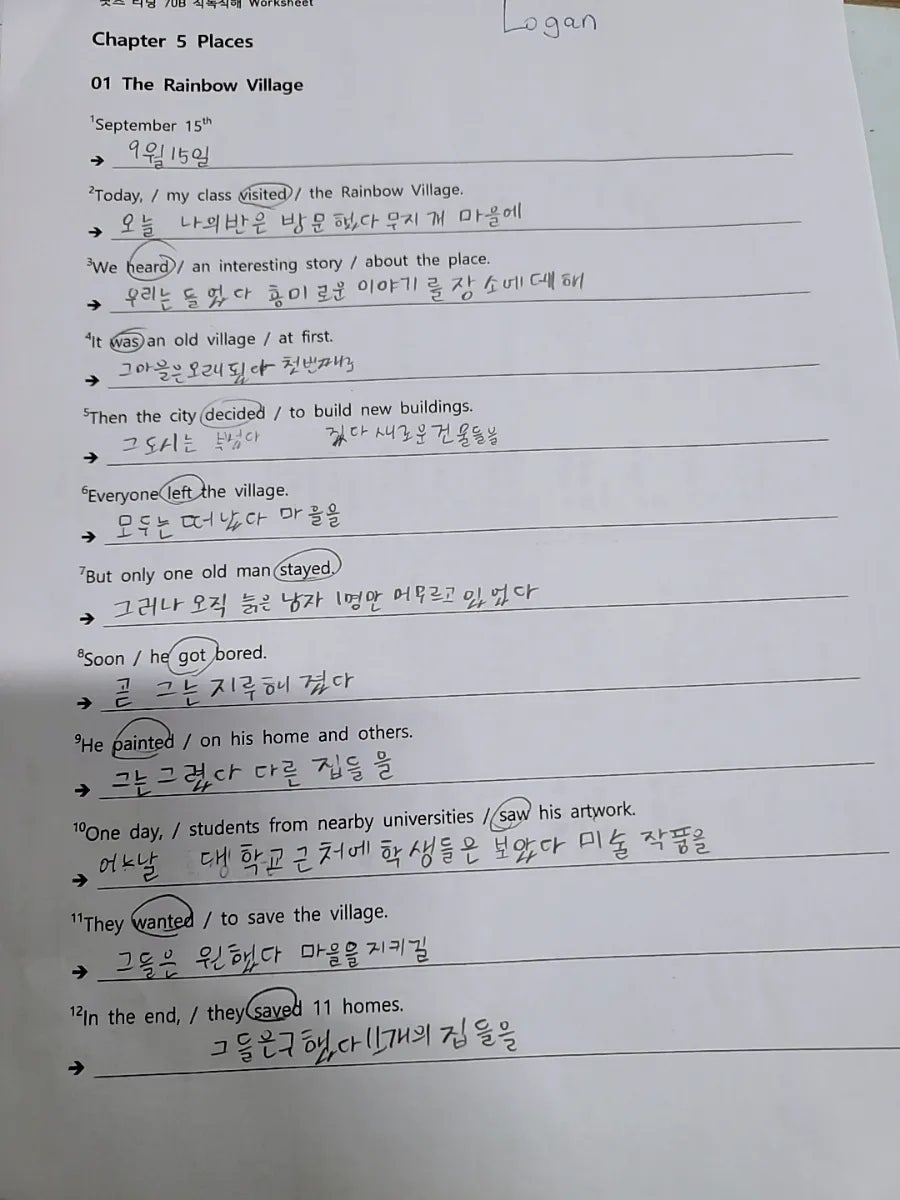 왓츠 리딩 70B 직독직해 Worksheet
Logan
Chapter 5 Places
01 The Rainbow Village
1September 15th
→ 9월 15일
2Today, / my class visited / the Rainbow Village.
→ 오늘 나의반은 방문했다 무지개 마을에
3We heard / an interesting story / about the place.
→ 우리는 들었다 흥미로운 이야기를 장소에 대해
4It was an old village / at first.
→ 그마을은오래됬다 첫번째로
5Then the city decided / to build new buildings.
→ 그 도시는 짔다 새로운건물들을
6Everyone left the village.
→ 모두는 떠났다 마을을
7But only one old man stayed.
→ 그러나 오직 늙은 남자 1명만 머무르고 있었다
8Soon / he got bored.
→ 곧 그는 지루해 졌다
9He painted / on his home and others.
→ 그는그렸다 다른 집들을
10One day, / students from nearby universities / saw his artwork.
→ 어느날 대학교근처에 학생들은 보았다 미술 작품을
11They wanted / to save the village.
→ 그들은 원했다 마을을지키길
12In the end, / they saved 11 homes.
→ 그들은구했다 11개의 집들을